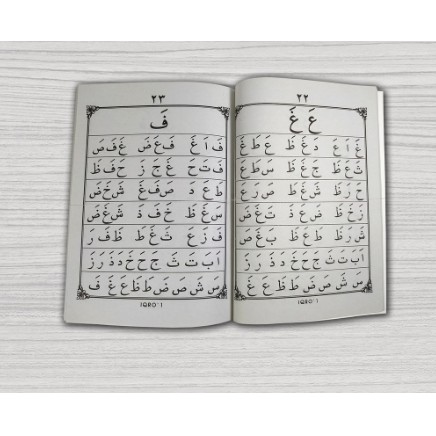 ٢٢
عَ غَ
غَ اَ عَ دَ غَ ظَ عَ طَ غَ
ثَ عَ ظَ جَ غَ ظَ سَ طَ عَ
حَ رَ ظَ شَ غَ ظَ صَ رَ عَ
زَ خَ ظَ ضَ عَ ذَ تَ عَ ضَ
شَ رَ ظَ طَ عَ ظَ بَ غَ صَ
اَ بَ تَ ثَ جَ حَ خَ دَ ذَ رَ زَ
سَ شَ صَ ضَ طَ ظَ عَ غَ
IQRO' 1
٢٣
فَ
فَ اَ غَ فَ عَ ضَ غَ فَ صَ
فَ تَ حَ غَ جَ زَ حَ فَ ظَ
طَ عَ دَ صَ فَ غَ شَ خَ ضَ
سَ غَ ظَ خَ فَ ذَ شَ غَ ضَ
فَ زَ عَ ثَ غَ ظَ ظَ فَ رَ
اَ بَ تَ ثَ جَ حَ خَ دَ ذَ رَ زَ
سَ شَ صَ ضَ طَ ظَ عَ غَ فَ
IQRO' 1